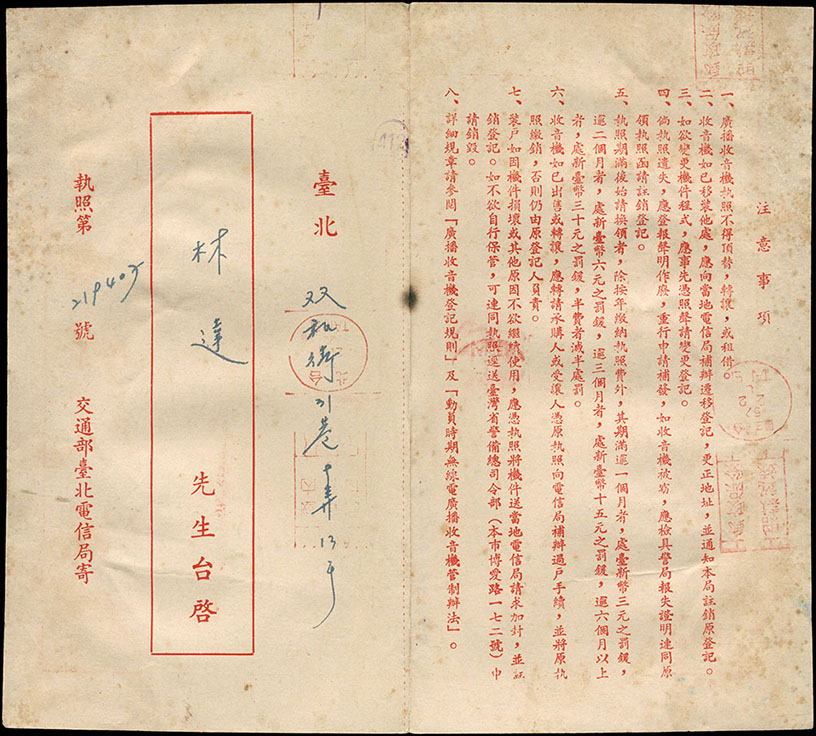 注意事項
一、廣播收音機執照不得頂替，轉讓，或租借。
二、收音機如已移裝他處，應向當地電信局補辦遷移登記，更正地址，並通知本局註銷原登記。
三、如欲變更機件程式，應事先憑照聲請變更登記。
四、倘執照遺失，應登報聲明作廢，重行申請補發，如收音機被竊，應檢具警局報失證明連同原
領執照函請註銷登記。
五、執照期滿後始請換領者，除按年繳納執照費外，其期滿逾一個月者，處臺幣三元之罰鍰，
逾二個月者，處新臺幣六元之罰鍰，逾三個月者，處新臺幣十五元之罰鍰，逾六個月以上
者，處新臺幣三十元之罰鍰，半費者減半處罰。
六、收音機如已出售或轉讓，應轉請承購人或受讓人憑原執照向電信局補辦過戶手續，並將原執
照繳銷，否則仍由原登記人員責。
七、裝戶如因機件損壞或其他原因不欲繼續使用，應憑執照將機件送當地電信局請求加封，並註
銷登記。如不欲自行保管，可連同執照逕送臺灣省警備總司令部（本市博愛路一七二號）申
請銷毀。
八、詳細規章請參閱「廣播收音機登記規則」及「動員時期無線電廣播收音機管制辦法」。
臺北
双和街31巷
弄13号
林達 先生台啓
執照第 219405 號
交通部臺北電信局寄